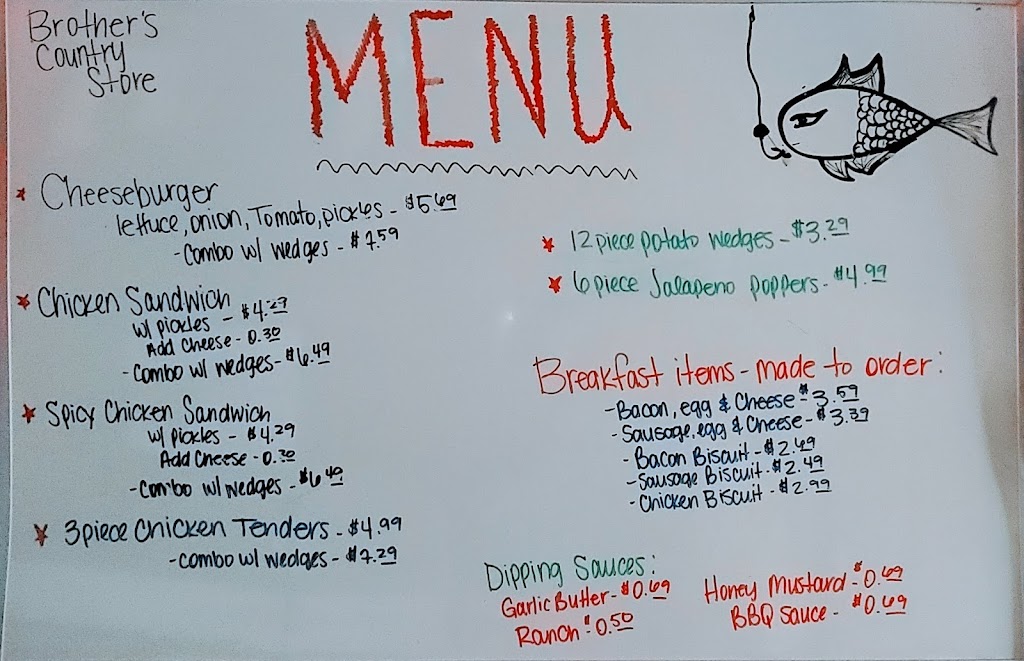 Brother's
Country
Store
MENU
Cheeseburger
lettuce, onion, Tomato, pickles - $5.69
- Combo w/ wedges - $7.59
Chicken Sandwich
w/ pickles - $4.29
Add Cheese - 0.30
- Combo w/ wedges - $6.49
Spicy Chicken Sandwich
w/ pickles - $4.29
Add Cheese - 0.30
- Combo w/ wedges - $6.49
3 piece Chicken Tenders - $4.99
- combo w/ wedges - $7.29
12 piece potato wedges - $3.29
6 piece Jalapeno poppers - $4.99
Breakfast items - made to order:
- Bacon, egg & Cheese - $3.59
- Sausage, egg & Cheese - $3.39
- Bacon Biscuit - $2.49
- Sausage Biscuit - $2.49
- Chicken Biscuit - $2.99
Dipping Sauces:
Garlic Butter - $0.69
Ranch - $0.50
Honey Mustard - $0.69
BBQ Sauce - $0.69